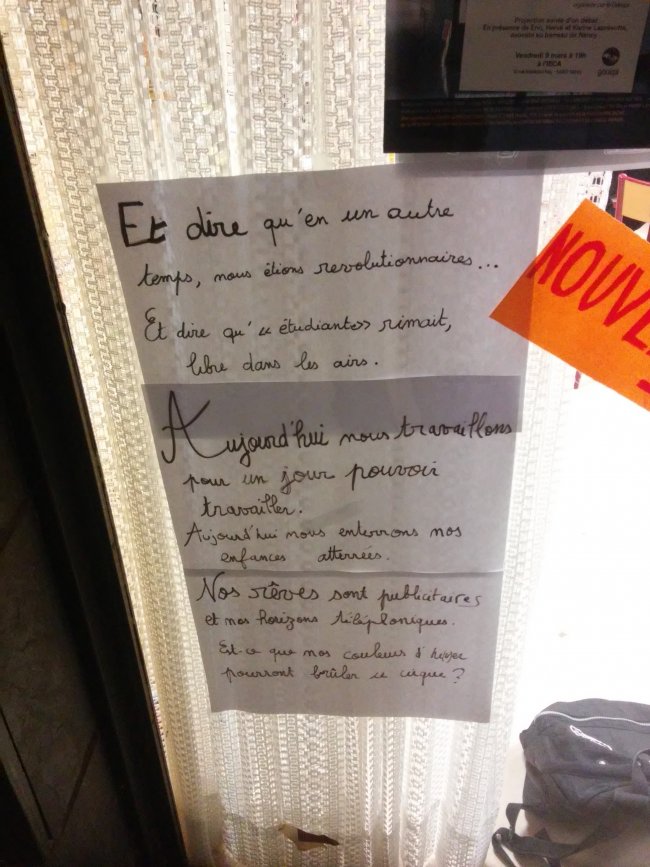 Projection suivie d'un débat
En présence de Ervi, Hervé et Karine
avocats au barreau de Nancy
Vendredi 9 mars à 19h
à l'IECA
Et dire qu'en un autre
temps, nous étions revolutionnaires...
Et dire qu'« étudiant » rimait,
libre dans les airs.
Aujourd'hui nous travaillons
pour un jour pouvoir
travailler.
Aujourd'hui nous enterrons nos
enfances atterrées.
Nos rêves sont publicitaires
et nos horizons téléphoniques.
Est-ce que nos couleurs d'
pourront brûler ce cirque ?
NOUVE